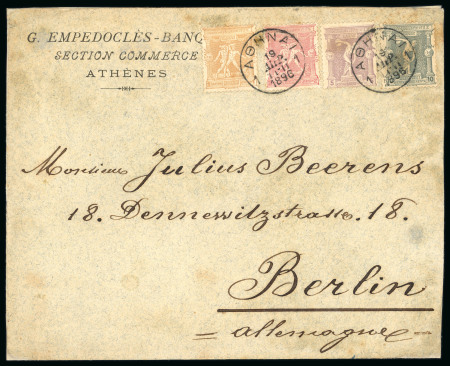 G. EMPEDOCLÈS-BANQ
SECTION COMMERCE
ATHÈNES
ΑΘΗΝΑΙ
1 1
19
ΑΠΡ.
1896
ΑΘΗΝΑΙ
1 1
ΑΠΡ.
1896
Monsieur Julius Beerens
18. Dennewitzstrasse. 18.
Berlin
= allemagne =